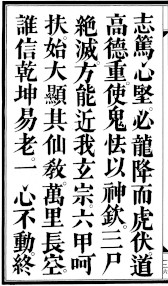 志篤心堅。必龍降而虎伏。道
高德重。使鬼怯以神欽。三尸
絶滅。方能近我玄宗。六甲呵
扶。始大顯其仙教。萬里長空。
誰信乾坤易老。一心不動。終